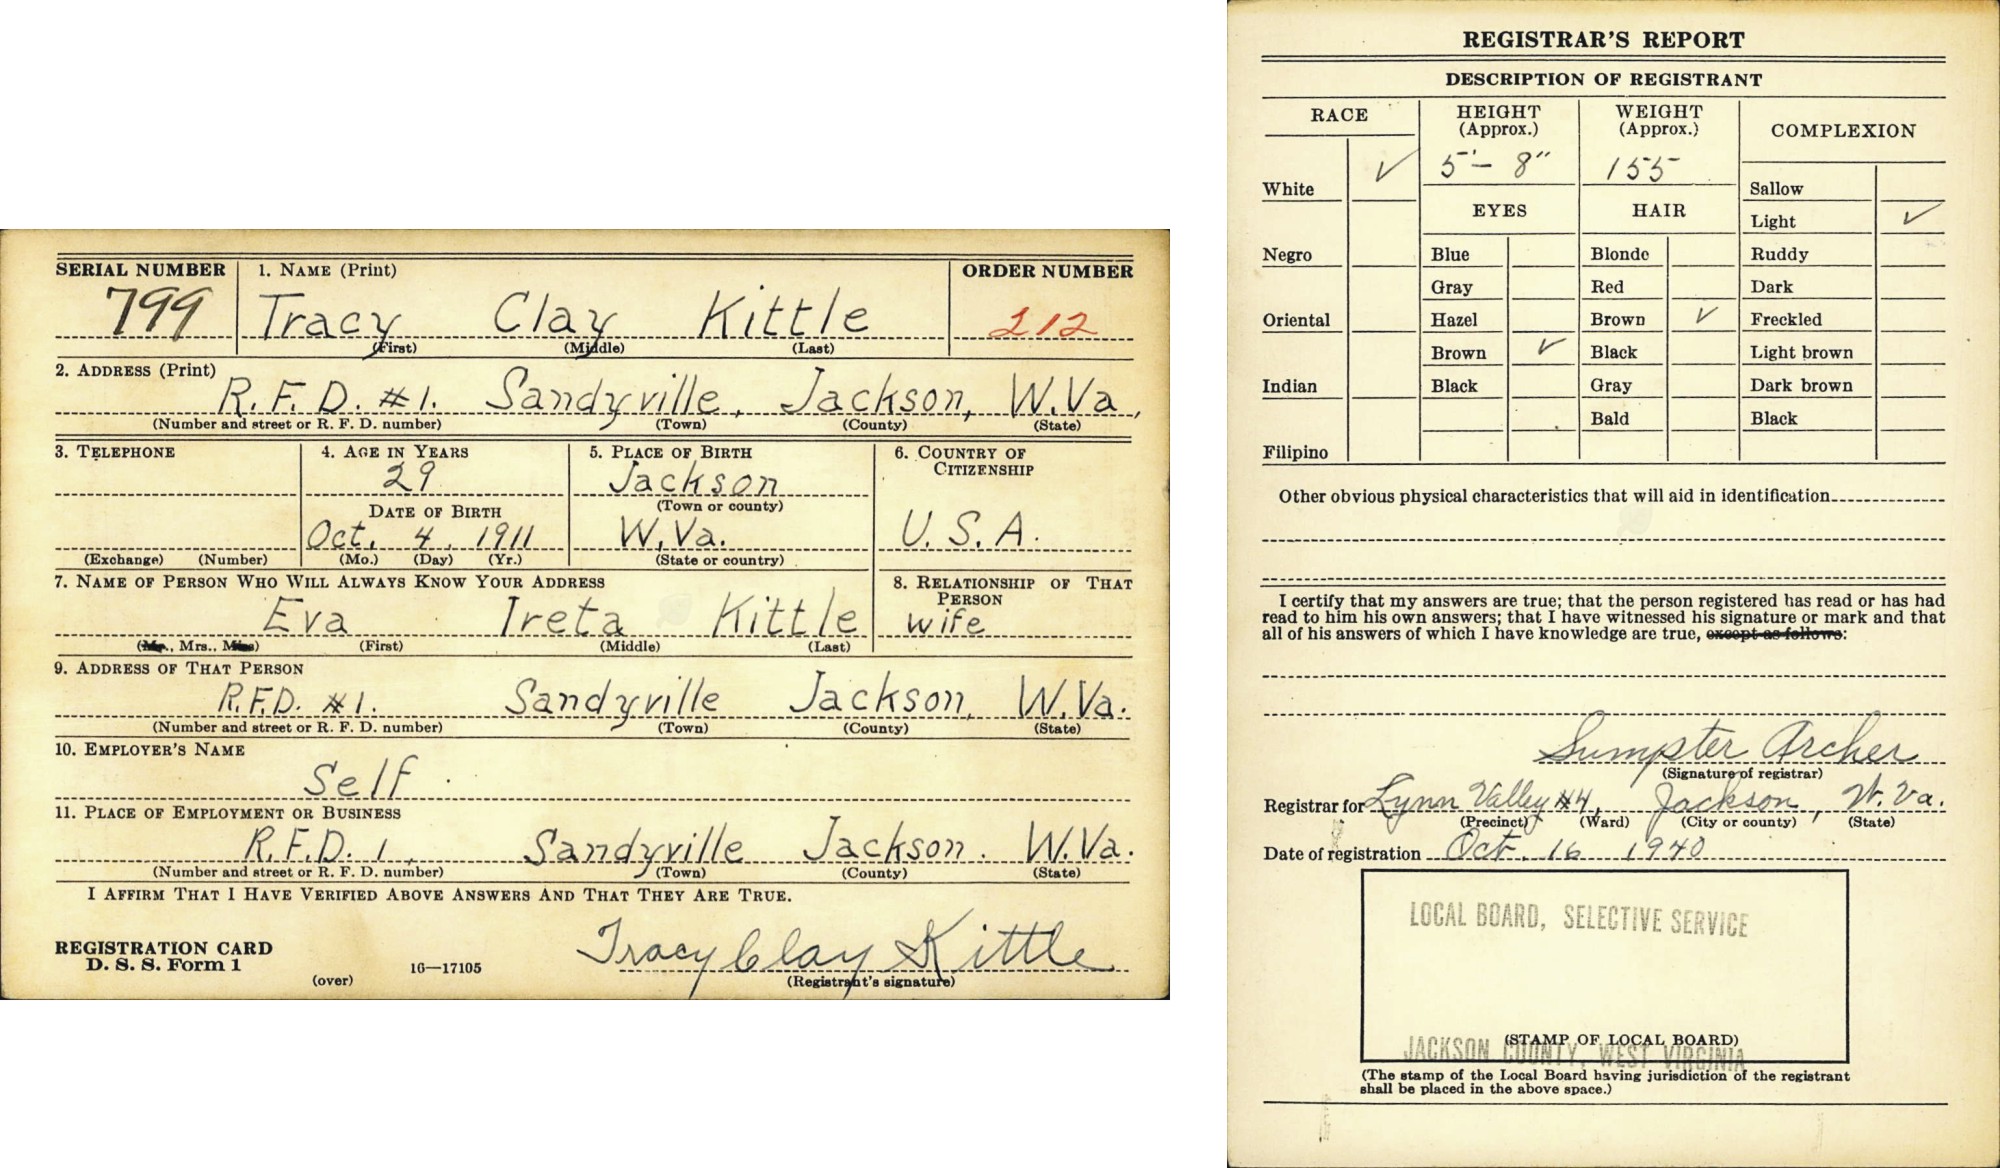 SERIAL NUMBER 1. NAME (Print) ORDER NUMBER
799 Tracy Clay Kittle 212
(First) (Middle) (Last)
2. ADDRESS (Print)
R.F.D. #1. Sandyville, Jackson, W.Va,
(Number and street or R. F. D. number) (Town) (County) (State)
3. TELEPHONE 4. AGE IN YEARS 5. PLACE OF BIRTH 6. COUNTRY OF CITIZENSHIP
29 Jackson
(Town or county)
DATE OF BIRTH
Oct. 4. 1911 W.Va. U.S.A.
(Exchange) (Number) (Mo.) (Day) (Yr.) (State or country)
7. NAME OF PERSON WHO WILL ALWAYS KNOW YOUR ADDRESS 8. RELATIONSHIP OF THAT PERSON
Eva Ireta Kittle wife
(Mr., Mrs., Miss) (First) (Middle) (Last)
9. ADDRESS OF THAT PERSON
R.F.D. #1. Sandyville Jackson, W.Va.
(Number and street or R. F. D. number) (Town) (County) (State)
10. EMPLOYER'S NAME
Self.
11. PLACE OF EMPLOYMENT OR BUSINESS
R.F.D. 1, Sandyville Jackson. W.Va.
(Number and street or R. F. D. number) (Town) (County) (State)
I AFFIRM THAT I HAVE VERIFIED ABOVE ANSWERS AND THAT THEY ARE TRUE.
REGISTRATION CARD
D. S. S. Form 1
(over) 16—17105
Tracy Clay Kittle
(Registrant's signature)
REGISTRAR'S REPORT
DESCRIPTION OF REGISTRANT
RACE HEIGHT (Approx.) WEIGHT (Approx.) COMPLEXION
White ✓ 5'- 8" 155 Sallow
EYES HAIR Light ✓
Negro Blue Blonde Ruddy
Gray Red Dark
Oriental Hazel Brown ✓ Freckled
Brown ✓ Black Light brown
Indian Black Gray Dark brown
Bald Black
Filipino
Other obvious physical characteristics that will aid in identification
I certify that my answers are true; that the person registered has read or has had
read to him his own answers; that I have witnessed his signature or mark and that
all of his answers of which I have knowledge are true, except as follows:
Sumpster Archer
(Signature of registrar)
Registrar for Lynn Valley #4, Jackson, W.Va.
(Precinct) (Ward) (City or county) (State)
Date of registration Oct. 16 1940
LOCAL BOARD, SELECTIVE SERVICE
(STAMP OF LOCAL BOARD)
JACKSON COUNTY, WEST VIRGINIA
(The stamp of the Local Board having jurisdiction of the registrant
shall be placed in the above space.)